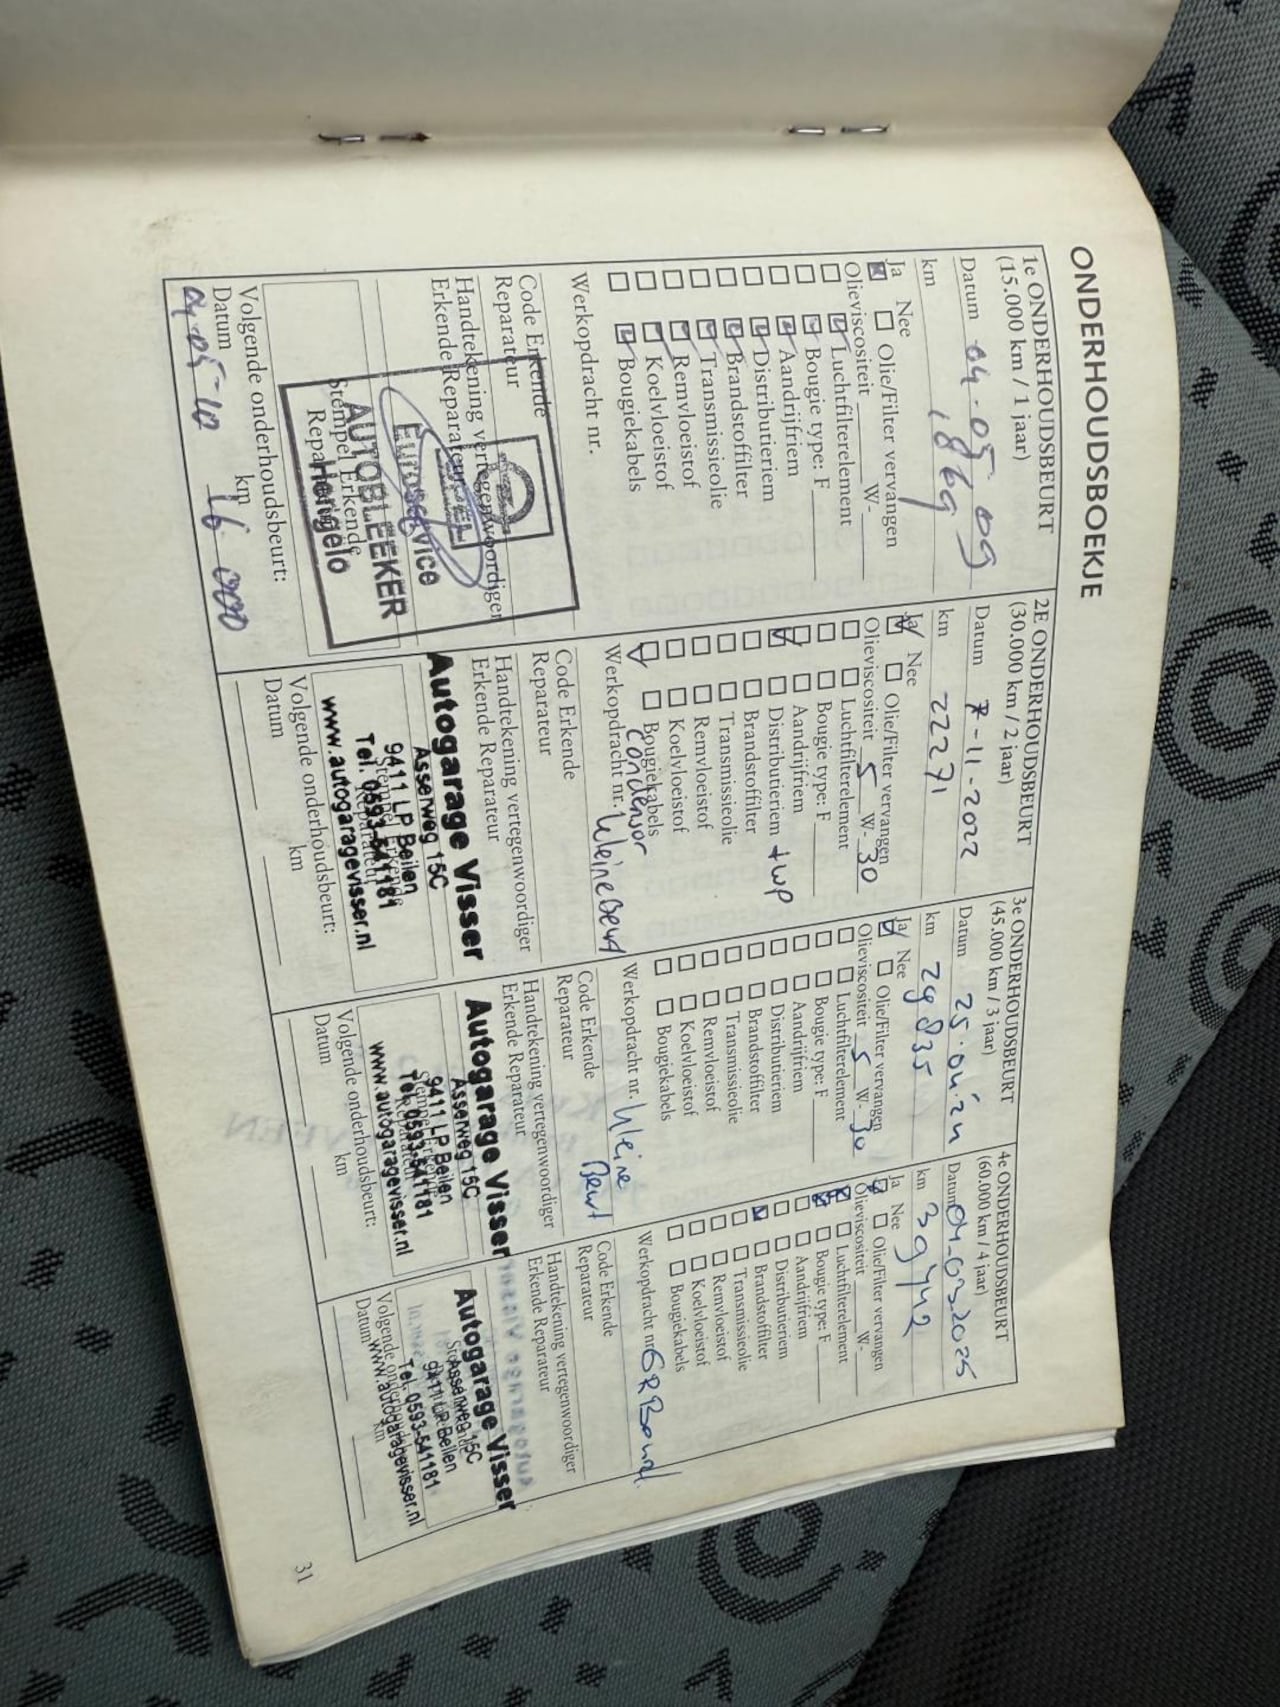 ONDERHOUDSBOEKJE
1e ONDERHOUDSBEURT
(15.000 km / 1 jaar)
Datum 04-05-09
km 1869
Ja Nee
Olie/Filter vervangen
Olieviscositeit W-
Luchtfilterelement
Bougie type: F
Aandrijfriem
Distributieriem
Brandstoffilter
Transmissieolie
Remvloeistof
Koelvloeistof
Bougiekabels
Werkopdracht nr.
Code Erkende
Reparateur
Handtekening vertegenwoordiger
Erkende Reparateur
Stempel Erkende
Reparateur
OPEL
Euroservice
AUTOBLEEKER
Hengelo
Volgende onderhoudsbeurt:
Datum km
04-05-10 16.000
2E ONDERHOUDSBEURT
(30.000 km / 2 jaar)
Datum 7-11-2022
km 22271
Ja Nee
Olie/Filter vervangen
Olieviscositeit 5 W- 30
Luchtfilterelement
Bougie type: F
Aandrijfriem
Distributieriem + WP
Brandstoffilter
Transmissieolie
Remvloeistof
Koelvloeistof
Bougiekabels
Condensor
Werkopdracht nr. kleine beurt
Code Erkende
Reparateur
Handtekening vertegenwoordiger
Erkende Reparateur
Autogarage Visser
Asserweg 15C
9411 LP Beilen
Stempel Erkende
Reparateur
Tel. 0593-541181
www.autogaragevisser.nl
Volgende onderhoudsbeurt:
Datum km
3e ONDERHOUDSBEURT
(45.000 km / 3 jaar)
Datum 25.04.24
km 29835
Ja Nee
Olie/Filter vervangen
Olieviscositeit 5 W- 30
Luchtfilterelement
Bougie type: F
Aandrijfriem
Distributieriem
Brandstoffilter
Transmissieolie
Remvloeistof
Koelvloeistof
Bougiekabels
Werkopdracht nr. kleine
Beurt
Code Erkende
Reparateur
Handtekening vertegenwoordiger
Erkende Reparateur
Autogarage Visser
Asserweg 15C
9411 LP Beilen
Stempel Erkende
Reparateur
Tel. 0593-541181
www.autogaragevisser.nl
Volgende onderhoudsbeurt:
Datum km
4e ONDERHOUDSBEURT
(60.000 km / 4 jaar)
Datum 04-03.2025
km 39442
Ja Nee
Olie/Filter vervangen
Olieviscositeit W-
Luchtfilterelement
Bougie type: F
Aandrijfriem
Distributieriem
Brandstoffilter
Transmissieolie
Remvloeistof
Koelvloeistof
Bougiekabels
Werkopdracht nr. GR Beurt
Code Erkende
Reparateur
Handtekening vertegenwoordiger
Erkende Reparateur
Autogarage Visser
Asserweg 15C
9411 LP Beilen
Tel. 0593-541181
www.autogaragevisser.nl
Volgende onderhoudsbeurt:
Datum km
31